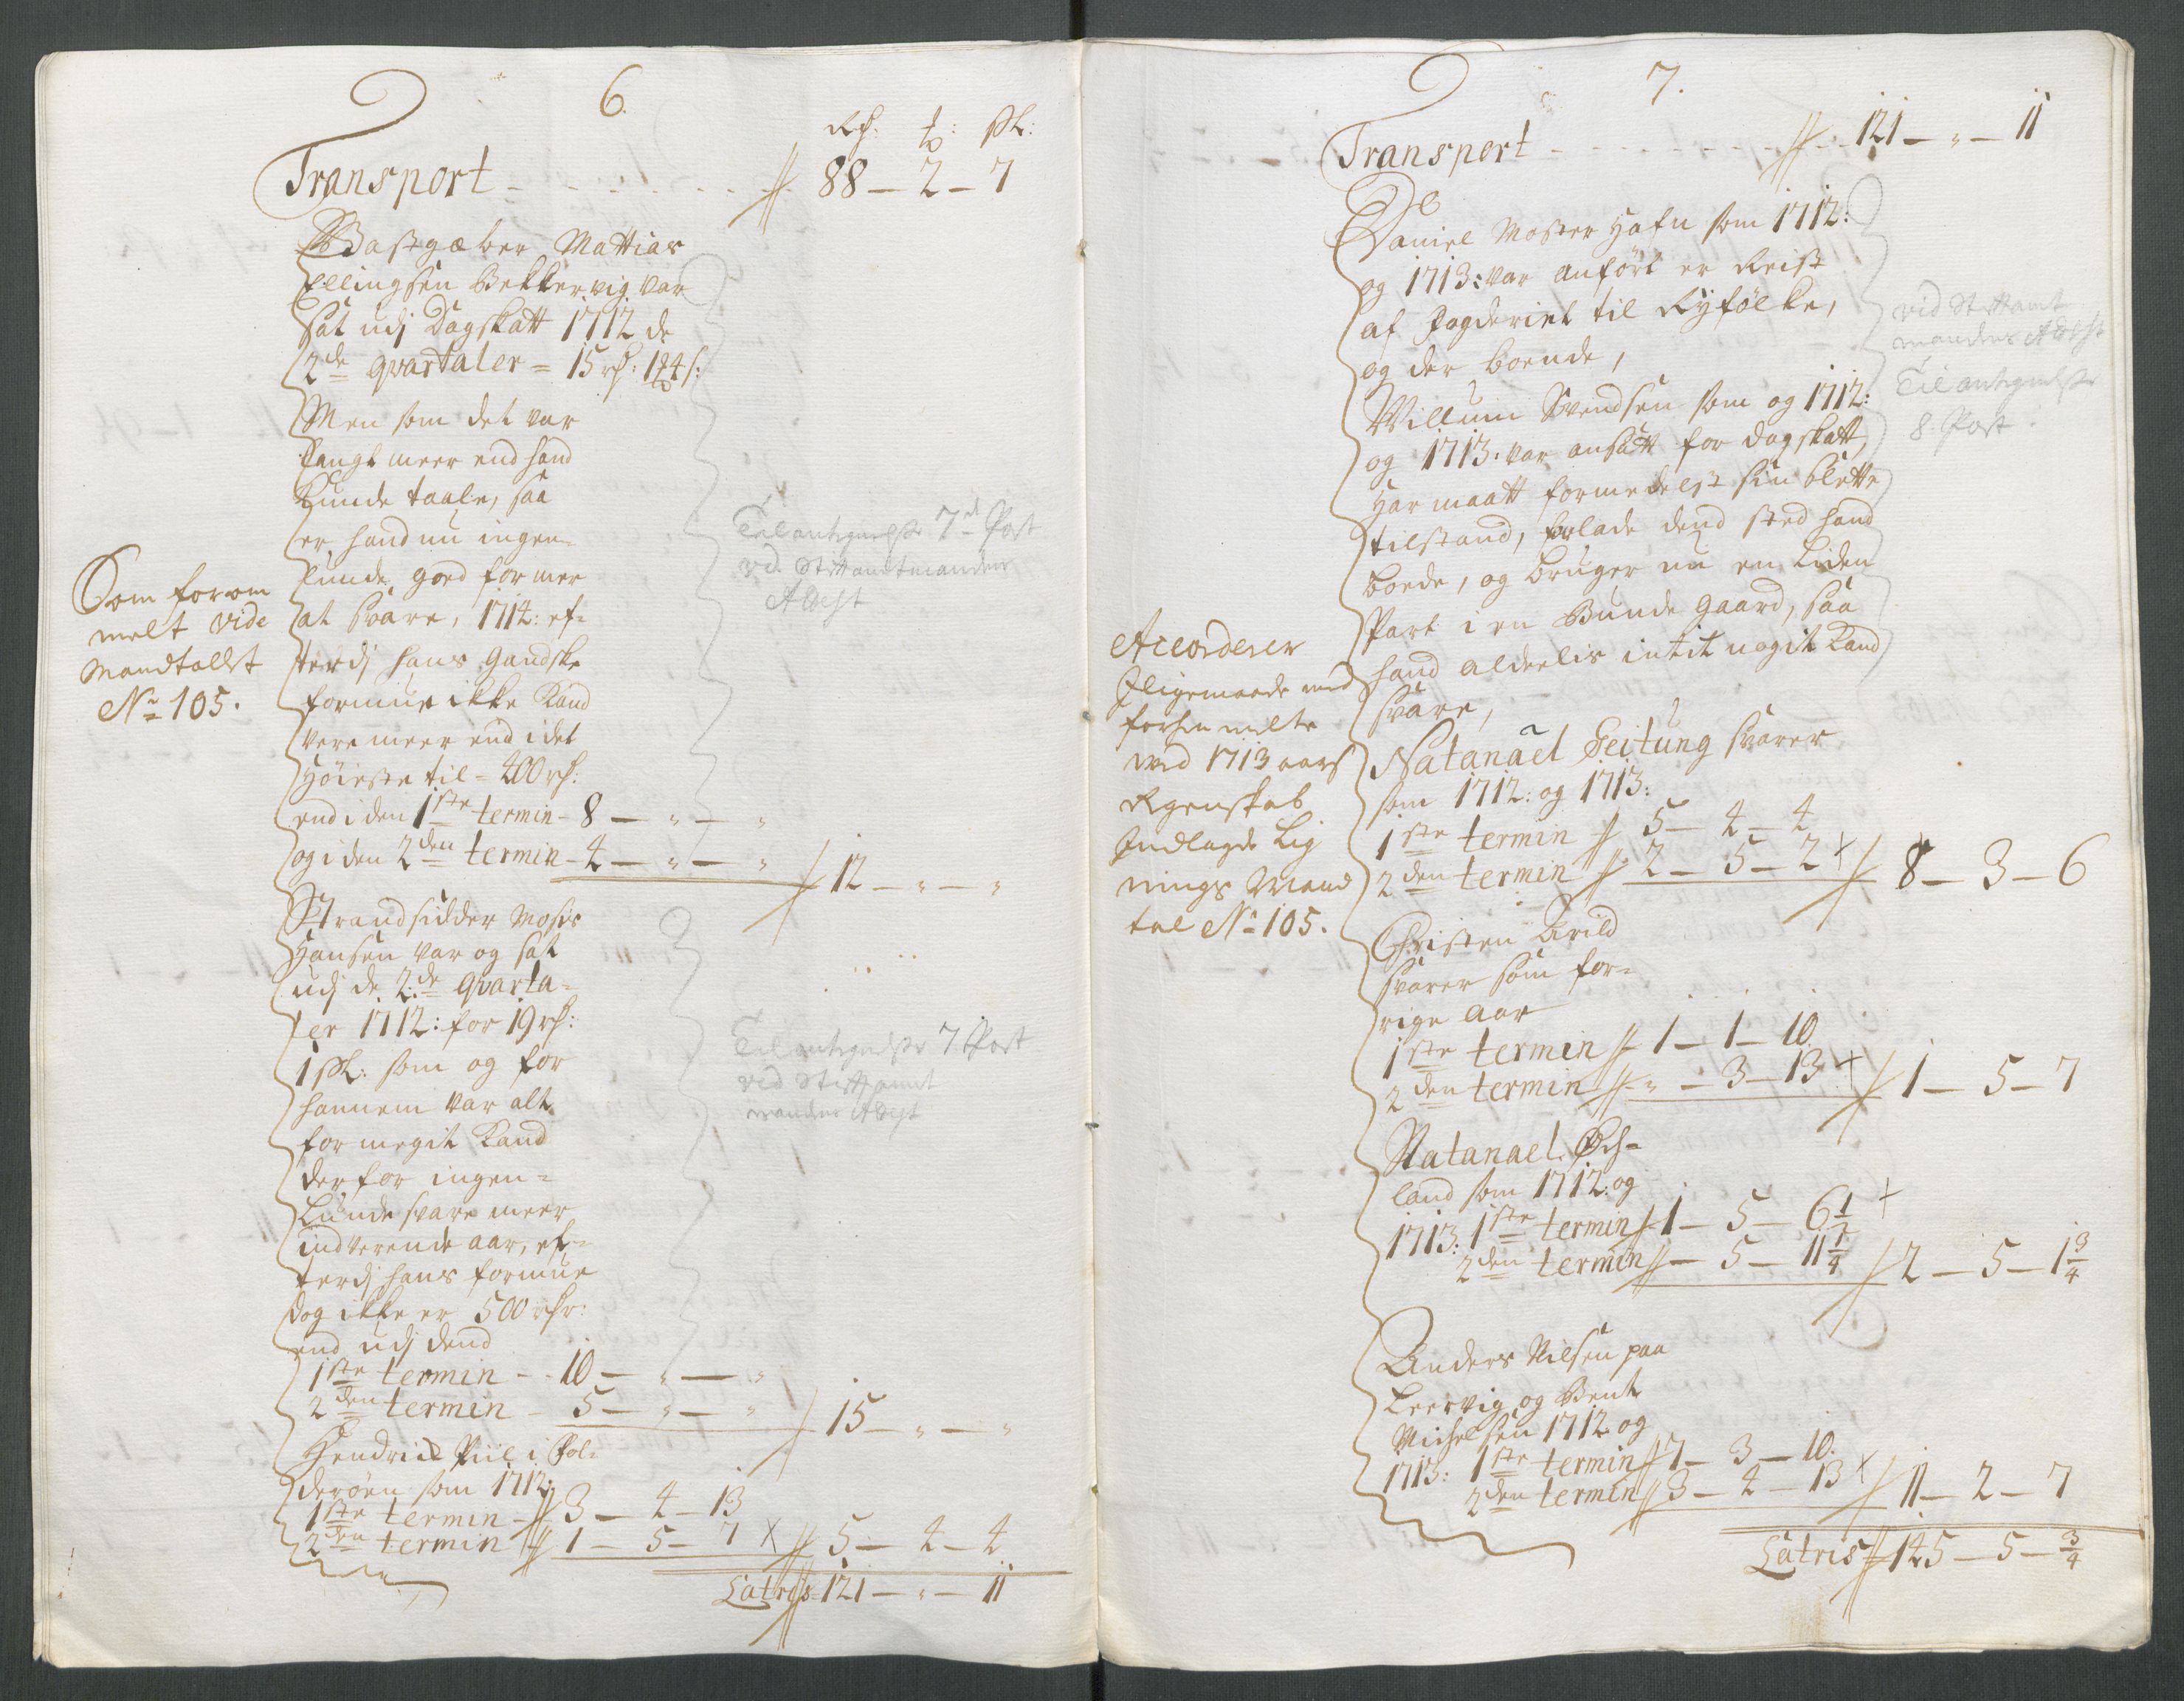 6.
Rd: ƻ: sk:
Transport - - - - - - - 88 - 2 - 7
Gastgæber Mattias
Ellingsen Bekkervig var
sat udj Dagskatt 1712 de
2de qvartaler = 15 rd: 1 ƻ 4 s:
Men som det var
langt meer end hand
kunde taale, saa
er hand nu ingen-
lunde goed for mer
at svare, 1714: ef-
terdj hans gandske
formue ikke kand
vere meer end i det
høieste til - 400 rd:
end i den 1ste termin - 8 - " - "
og i den 2den termin - 4 - " - " 12 - " - "
Som foromm
melt vide
Mandtallet
No 105.
Til antegnelse 7de Post
vid Stiftamtmandens
Attest
Strandsidder Moses
Hansen var og sat
udj de 2de qvarta-
ler 1712: for 19 rd:
1 sk: som og for
hannem var alt
for megit kand
derfor ingen-
lunde svare meer
indverende aar, ef-
terdj hans formue
dog ikke er 500 rdr:
end udj dend
1ste termin - 10 - " - "
2den termin - 5 - " - " 15 - " - "
Til antegnelse 7 Post
vid Stiftamt
mandens Attest
Hendrich Piil i Fol-
derøen som 1712:
1ste termin - 3 - 4 - 13
2den termin 1 - 5 - 7 × 5 - 4 - 4
Latris 121 - " - 11
7.
Transport - - - - - - - 121 - " - 11
Daniel Moster Hafn som 1712:
og 1713: var anført er Reist
af fogderiet til Ryfølke,
og der boende,
Willum Svendsen som og 1712:
og 1713. var ansatt for dagskatt,
har maatt formedelst sin slette
tilstand, forlade dend sted hand
boede, og bruger nu en liden
Part i en Bunde gaard, saa
hand aldeelis intit nogit kand
svare,
vid Stiftamt
mandens Attest
Til antegnelse
8. Post.
Accorderer
ligemaade med
forhen melte
med 1713 aars
Regenskab
Indlagde Lig
nings Mand
tal No 105.
Natanäel Feitung svarer
som 1712: og 1713:
1ste termin 5 - 4 - 4
2den termin 2 - 5 - 2 × 8 - 3 - 6
Christen Arild
svarer som for-
rige aar
1ste termin 1 - 1 - 10.
2den termin " - 3 - 13 × 1 - 5 - 7
Natanael
land som 1712: og
1713: 1ste termin 1 - 5 - 6 1/2 ×
2den termin - 5 - 11 1/4 2 - 5 - 1 3/4
Anders Nilsen paa
Leervig og Bent
Michelsen 1712 og
1713: 1ste termin 7 - 3 - 10.
2den termin 3 - 4 - 13 × 11 - 2 - 7
Latris 145 - 5 - 3/4